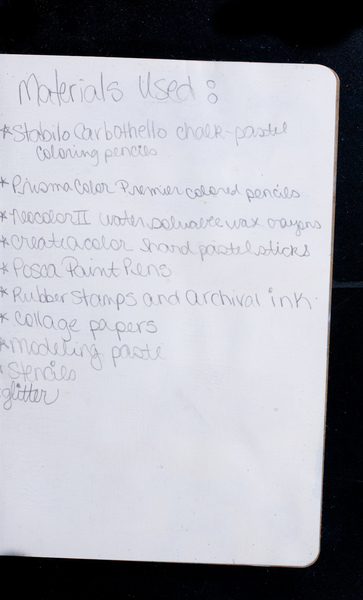 Materials Used:
* Stabilo Carbothello chalk-pastel
coloring pencils
* Prismacolor Premier colored pencils
* Neocolor II water soluable wax crayons
* Creatacolor shard pastel sticks
* Posca Paint Pens
* Rubber Stamps and archival ink
* collage papers
* Modeling paste
* Stencils
glitter